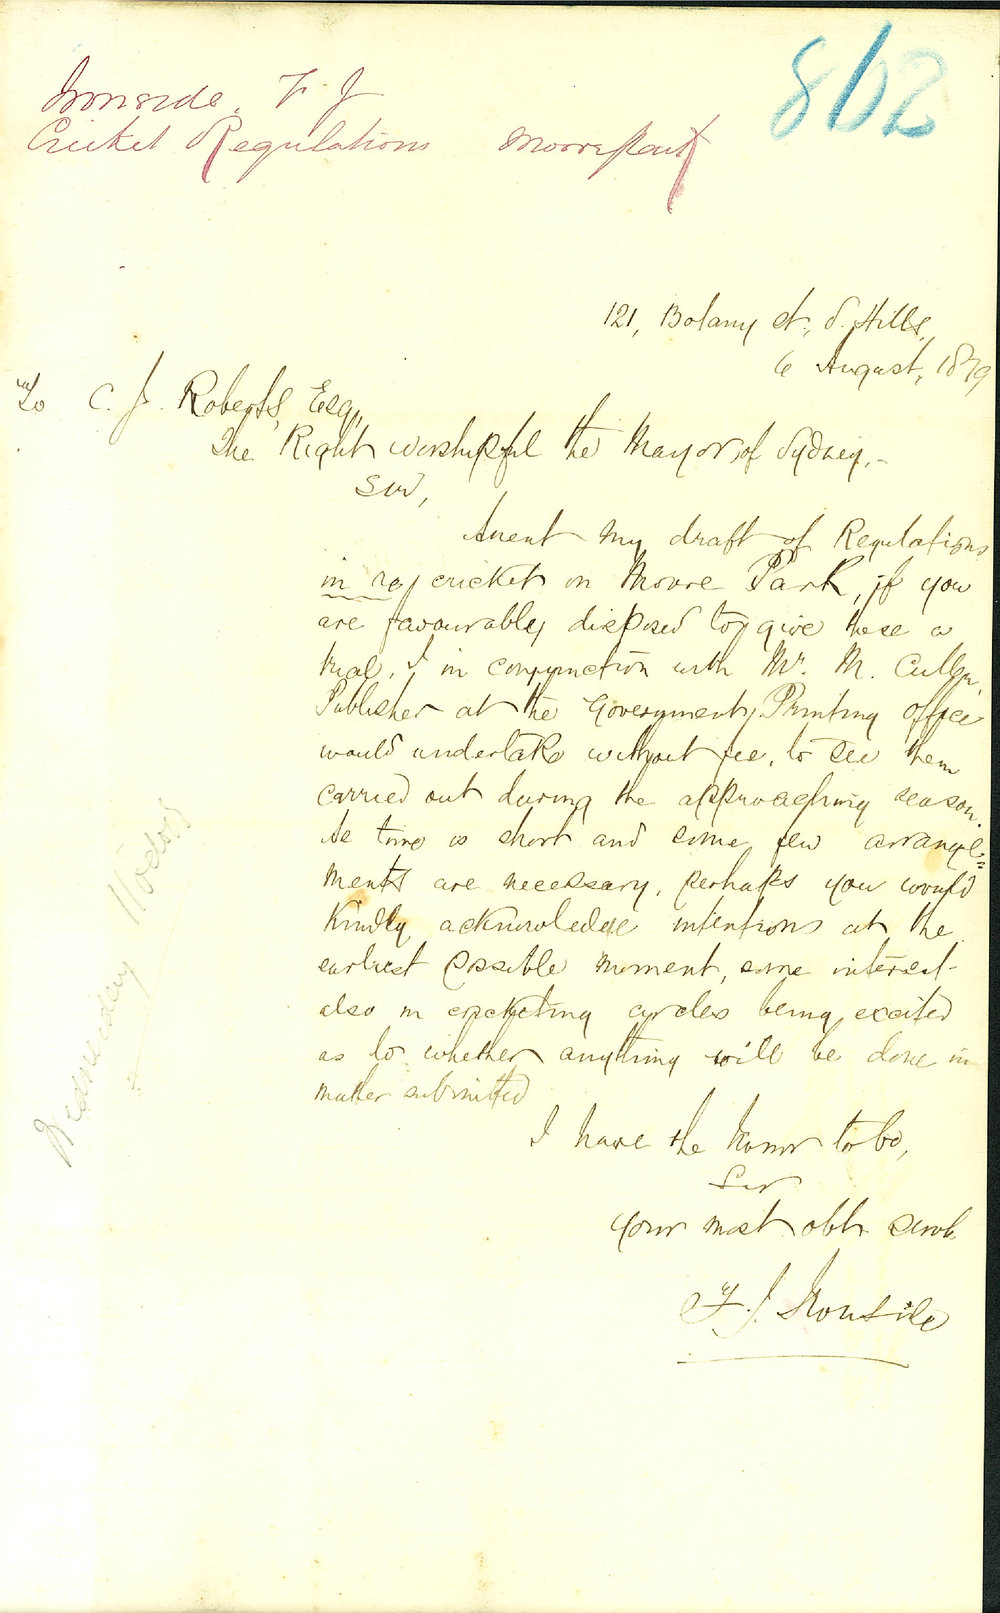 802
Ironside. F. J
Cricket Regulations Moorepark
121, Botany St., S. Hills,
6 August, 1879
To C. J. Roberts, Esq.,
The Right Worshipful the Mayor of Sydney,-
Sir,
Anent my draft of Regulations
in re cricket on Moore Park, if you
are favourably disposed to give these a
trial, I in conjunction with Mr. M. Cullen,
Publisher at the Government Printing Office
would undertake without fee, to see them
carried out during the approaching season.
As time is short and some few arrange=
ments are necessary, perhaps you would
kindly acknowledge intentions at the
earliest possible moment, some interest
also in cricketing circles being excited
as to whether anything will be done in
matter submitted
I have the honor to be,
Sir
Your most obt. servt
F. J. Ironside
Wednesday